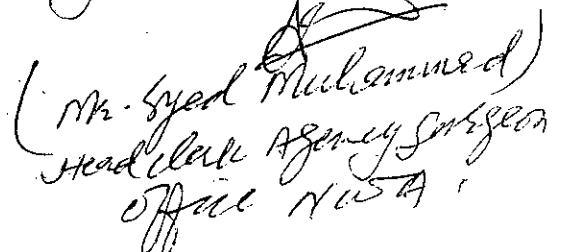 (Mr. Syed Muhammad)
Head clerk Agency Surgeon
Office NWA.